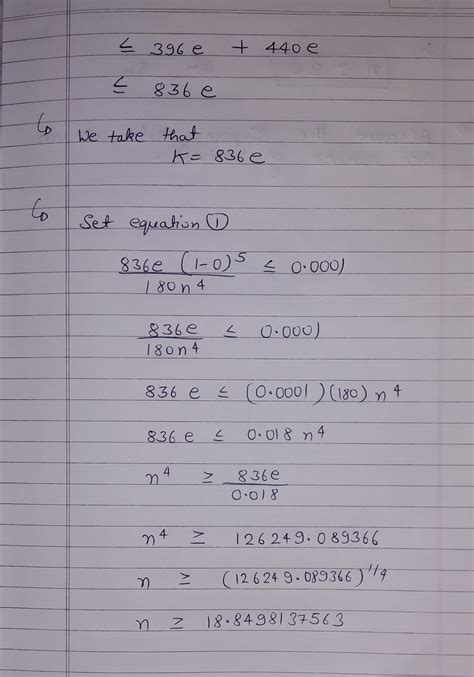 ≤ 396e + 440e
≤ 836e
We take that
K = 836e
Set equation ①
836e (1-0)⁵ ≤ 0.0001
180n⁴
836e ≤ 0.0001
180n⁴
836 e ≤ (0.0001)(180) n⁴
836 e ≤ 0.018 n⁴
n⁴ ≥ 836e
0.018
n⁴ ≥ 126249.089366
n ≥ (126249.089366)^1/4
n ≥ 18.8498137563